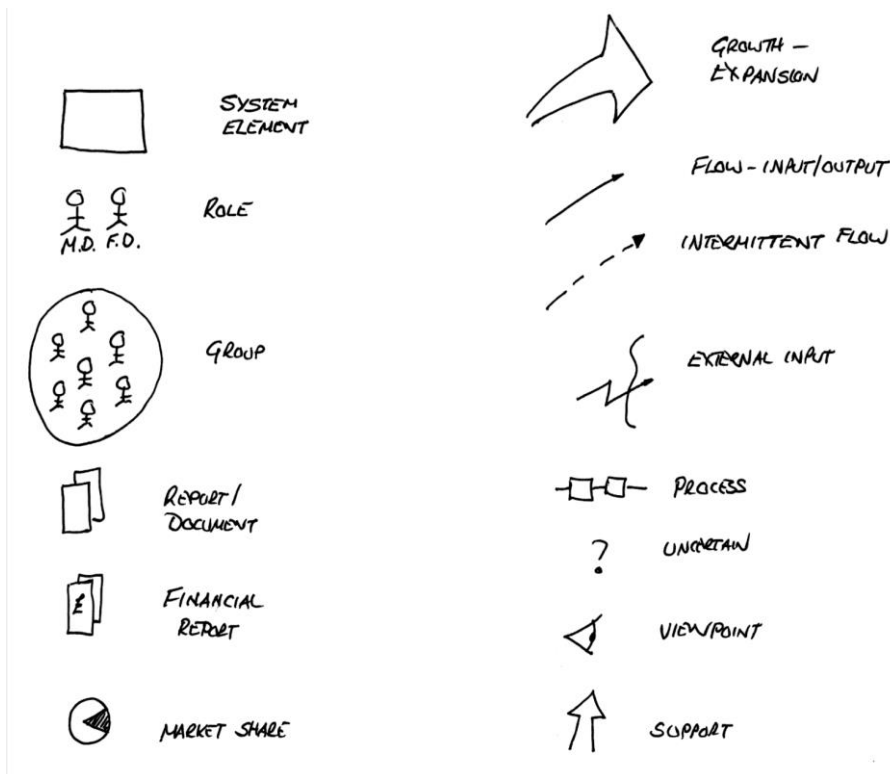 SYSTEM
ELEMENT
ROLE
M.D. F.D.
GROUP
REPORT/
DOCUMENT
£
FINANCIAL
REPORT
MARKET SHARE
GROWTH -
EXPANSION
FLOW - INPUT/OUTPUT
INTERMITTENT FLOW
EXTERNAL INPUT
PROCESS
?
UNCERTAIN
VIEWPOINT
SUPPORT